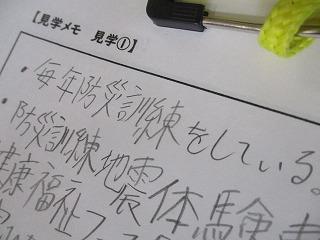 【見学メモ 見学①】
・毎年防災訓練をしている。
・防災訓練地震体験車
健康福祉フェ